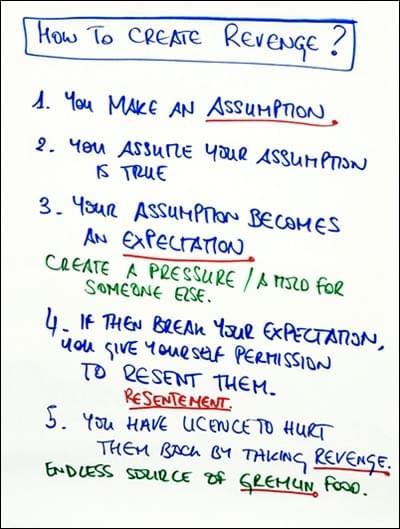 HOW TO CREATE REVENGE?
1. YOU MAKE AN ASSUMPTION.
2. YOU ASSUME YOUR ASSUMPTION
IS TRUE
3. YOUR ASSUMPTION BECOMES
AN EXPECTATION.
CREATE A PRESSURE / A MOLD FOR
SOMEONE ELSE.
4. IF THEN BREAK YOUR EXPECTATION,
YOU GIVE YOURSELF PERMISSION
TO RESENT THEM.
RESENTEMENT.
5. YOU HAVE LICENCE TO HURT
THEM BACK BY TAKING REVENGE.
ENDLESS SOURCE OF GREMLIN FOOD.